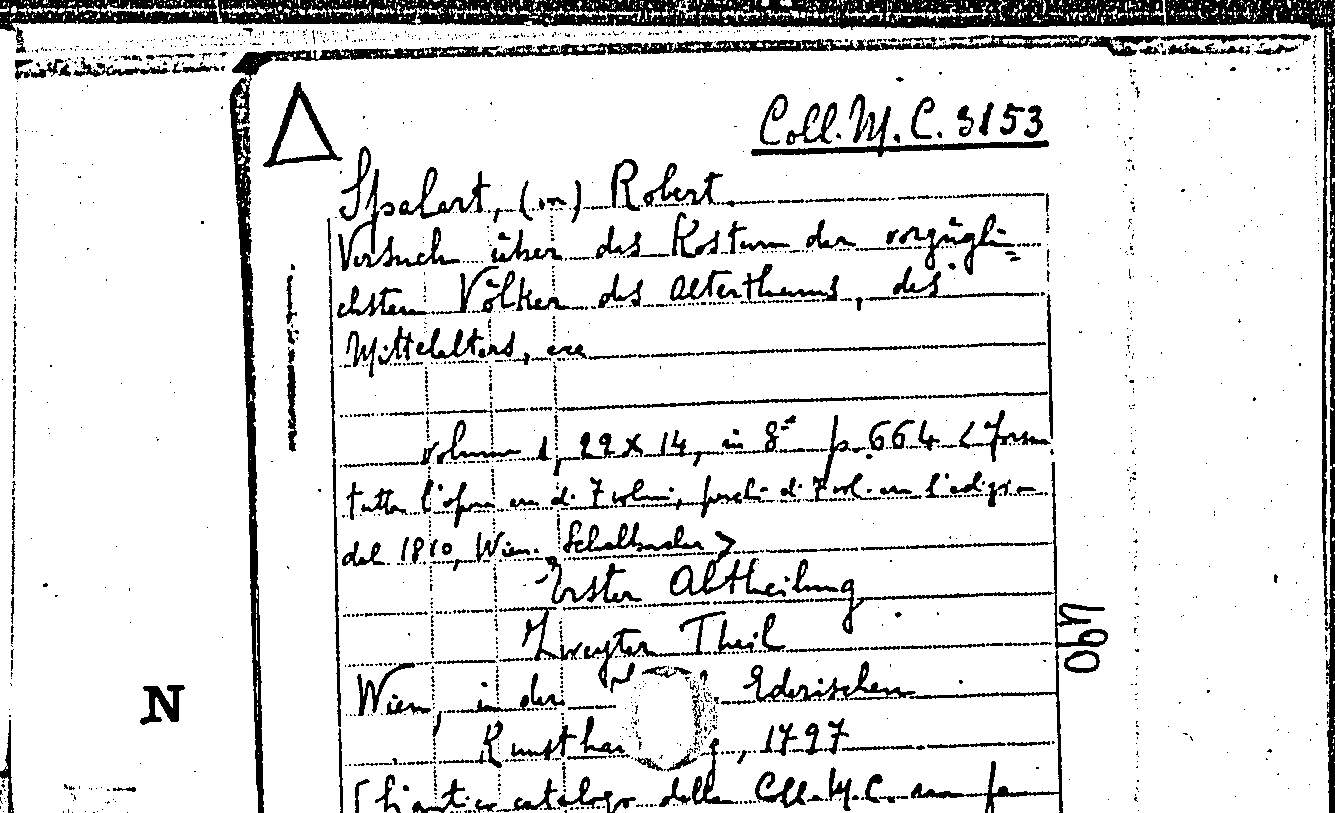 Coll. M. C. 3153
Spalart, (von) Robert.
Versuch über das Kostum der vorzügli=
chsten Völker des Alterthums, des
Mittelalters, ecc
volume 1, 22 X 14, in 8° p. 664 < forma
tutta l'opera era di 7 volumi, perché di 7 vol. era l'edizione
dal 1810, Wien. Schalbacher >
Erster Abtheilung
Zweyter Theil
Wien, in der Ederischen
Kunsthandlung, 1797
[L'antico catalogo della Coll. M. C. non fa
N